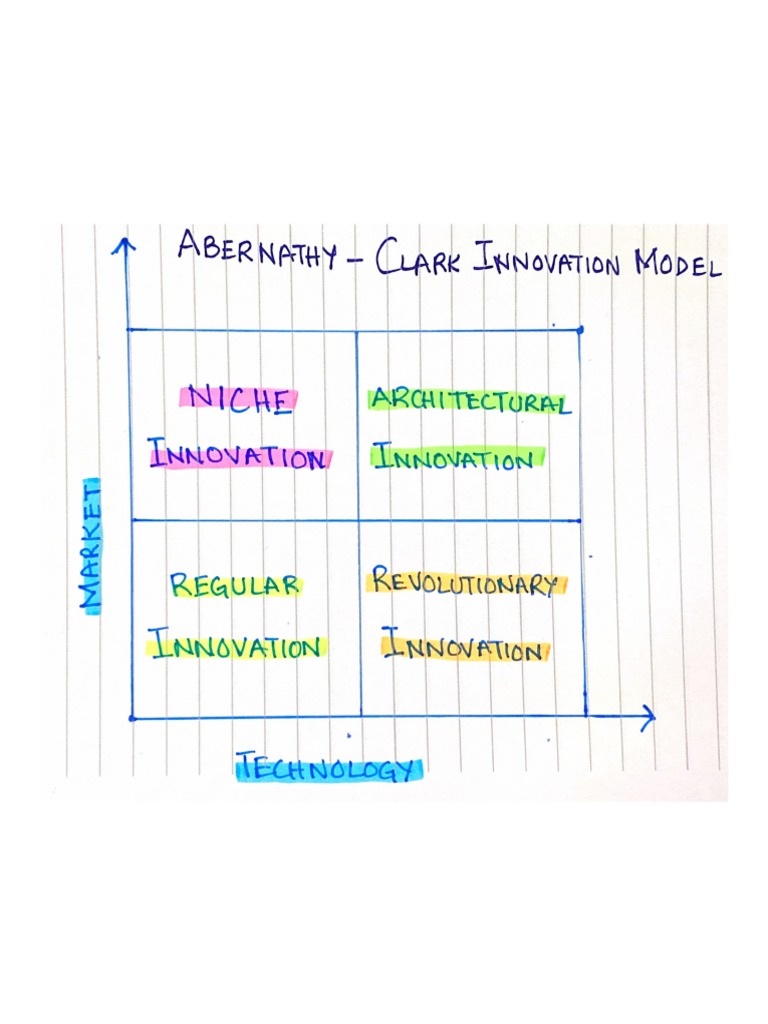 ABERNATHY - CLARK INNOVATION MODEL
NICHE
INNOVATION
ARCHITECTURAL
INNOVATION
MARKET
REGULAR
INNOVATION
REVOLUTIONARY
INNOVATION
TECHNOLOGY